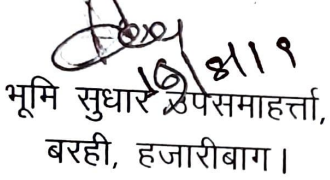 भूमि सुधार उपसमाहर्त्ता,
बरही, हजारीबाग।